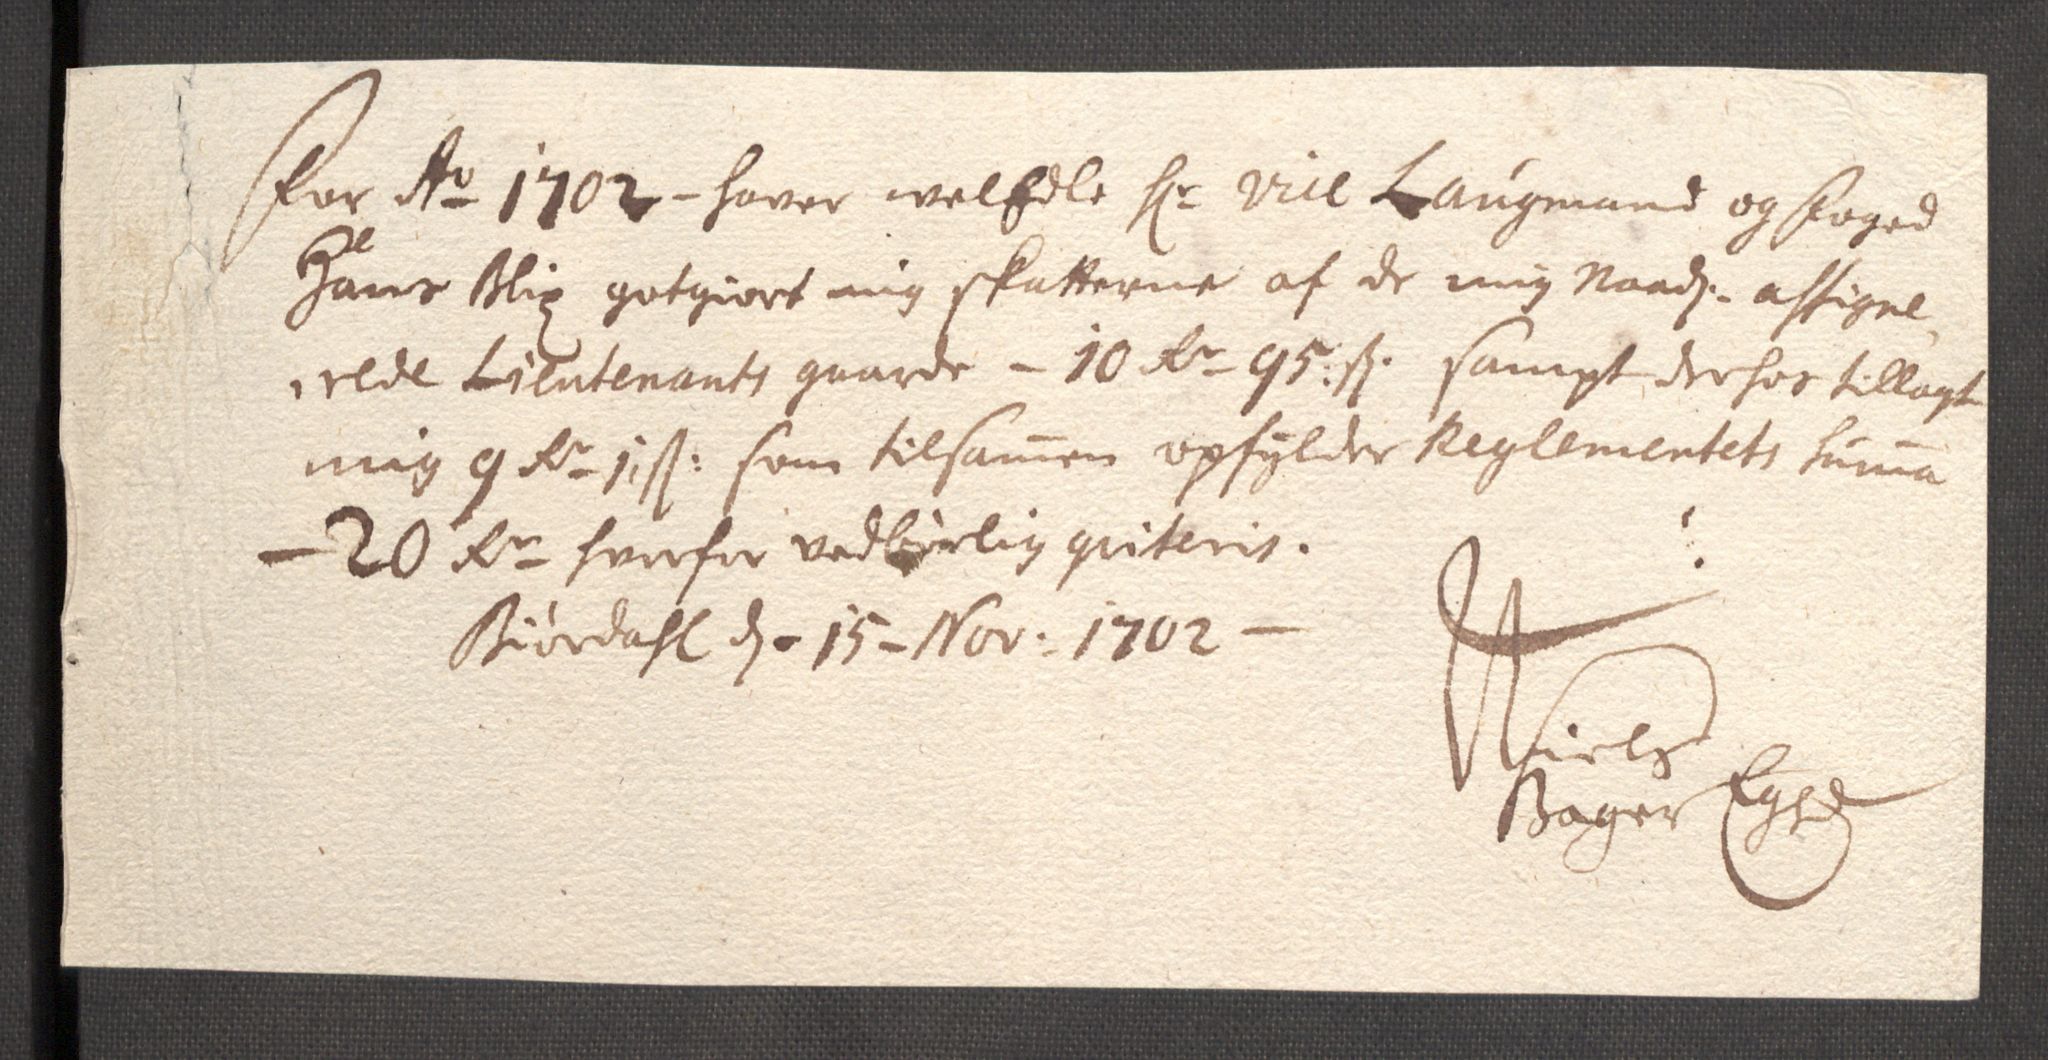 For Ao 1702 - haver welEdle Hr Vice Laugmand og Foged
Hans Blix gotgiort mig skatterne af de mig Naads. assigne,
,rede Lieutenants gaarde - 10 Rdr 95: ß. sampt derhos tillagt
mig 9 Rdr 1: ß: som tilsamen opfylder Reglementets suma
- 20 Rdr hvorfor vedbørlig qviteris.
Biørdahl d. - 15 - Nov: 1702 -
Niels
Bager Egge